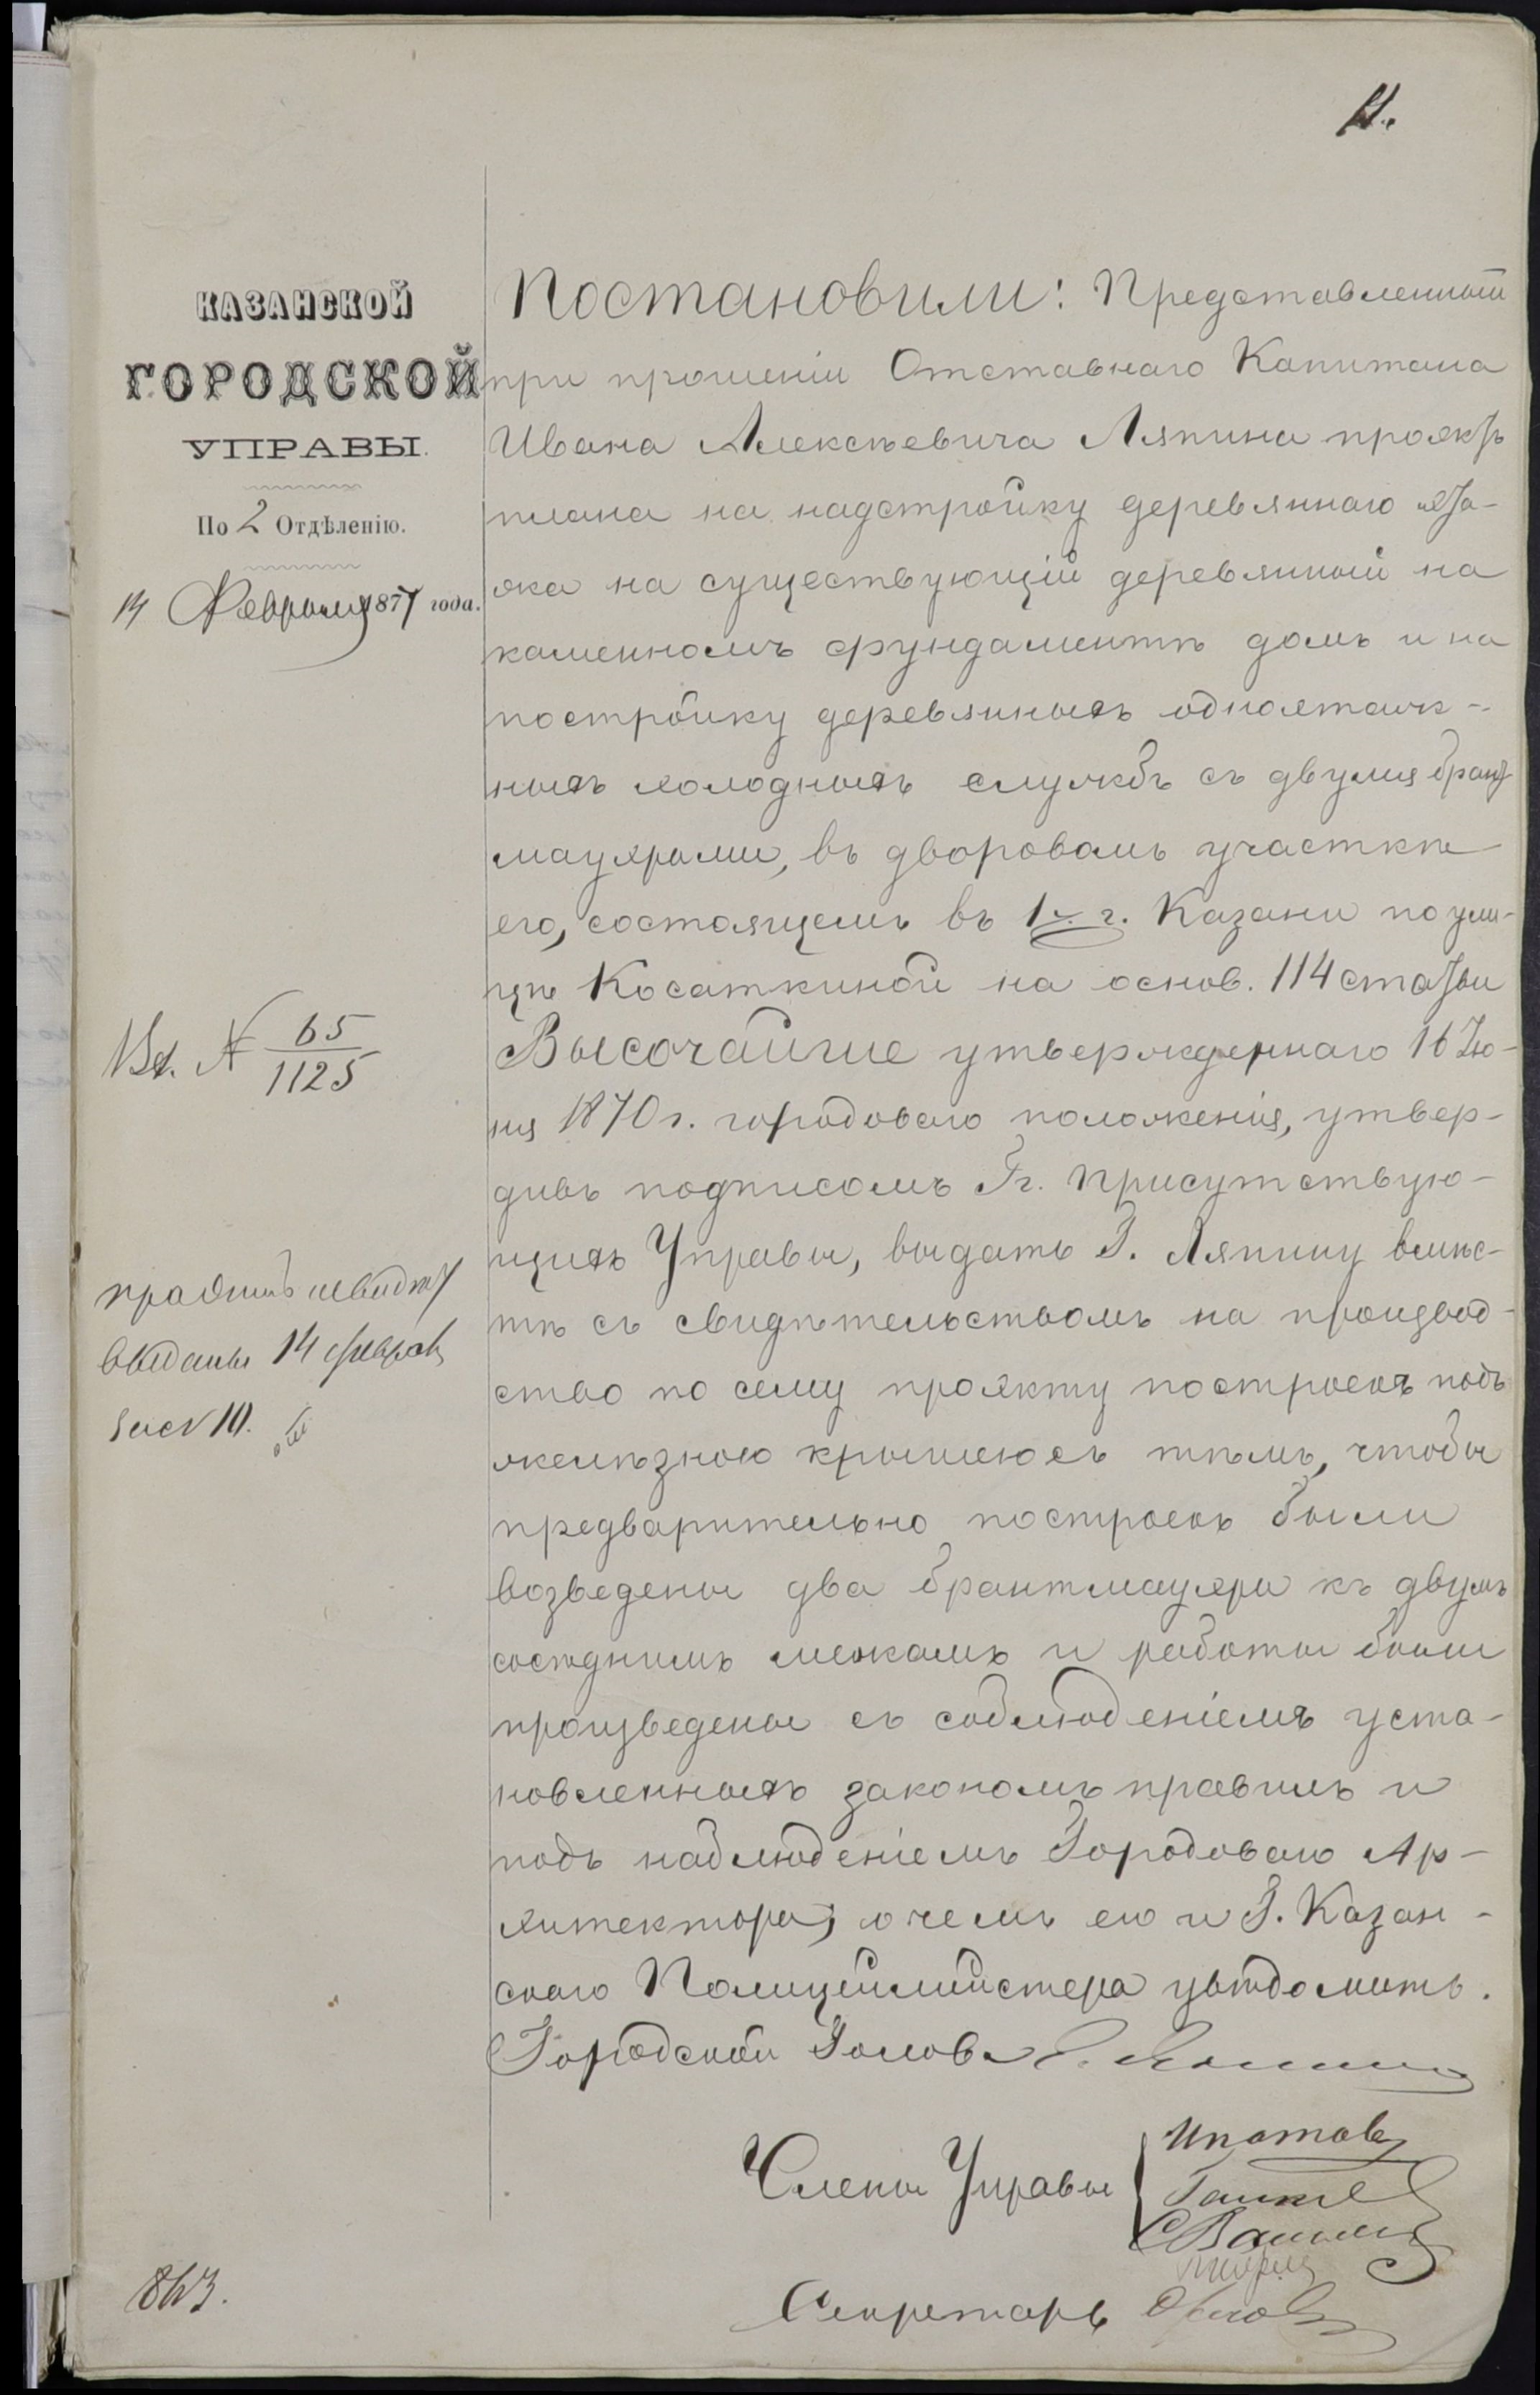 КАЗАНСКОЙ
ГОРОДСКОЙ
УПРАВЫ.
По 2 Отдѣленію.
14 Февраля 1877 года.
Вх. № 65/1125
выданы 14 февраля
863.
Постановили: Представленный
при прошеніи Отставнаго Капитана
Ивана Алексѣевича Ляпина проэктъ
плана на надстройку деревяннаго эта-
жа на существующій деревянный на
каменномъ фундаментѣ домъ и на
постройку деревянныхъ одноэтаж-
ныхъ холодныхъ службъ съ двумя бранд-
мауэрами, въ дворовомъ участкѣ
его, состоящемъ въ 1 ч. г. Казани по ули-
цѣ Косаткиной на основ. 114 статьи
Высочайше утвержденнаго 16 Iю-
ня 1870 г. городоваго положенія, утвер-
дивъ подписомъ Гг. Присутствую-
щихъ Управы, выдать Г. Ляпину вмѣс-
тѣ съ свидѣтельствомъ на производ-
ство по сему проэкту построекъ подъ
желѣзною крышею съ тѣмъ, чтобы
предварительно построекъ были
возведены два брантмауэра къ двумъ
сосѣднимъ межамъ и работы были
произведены съ соблюденіемъ уста-
новленныхъ закономъ правилъ и
подъ наблюденіемъ Городоваго Ар-
хитектора, о чемъ его и Г. Казан-
скаго Полицеймейстера увѣдомить.
Городской Голова
Члены Управы
Ипатовъ
Секретарь